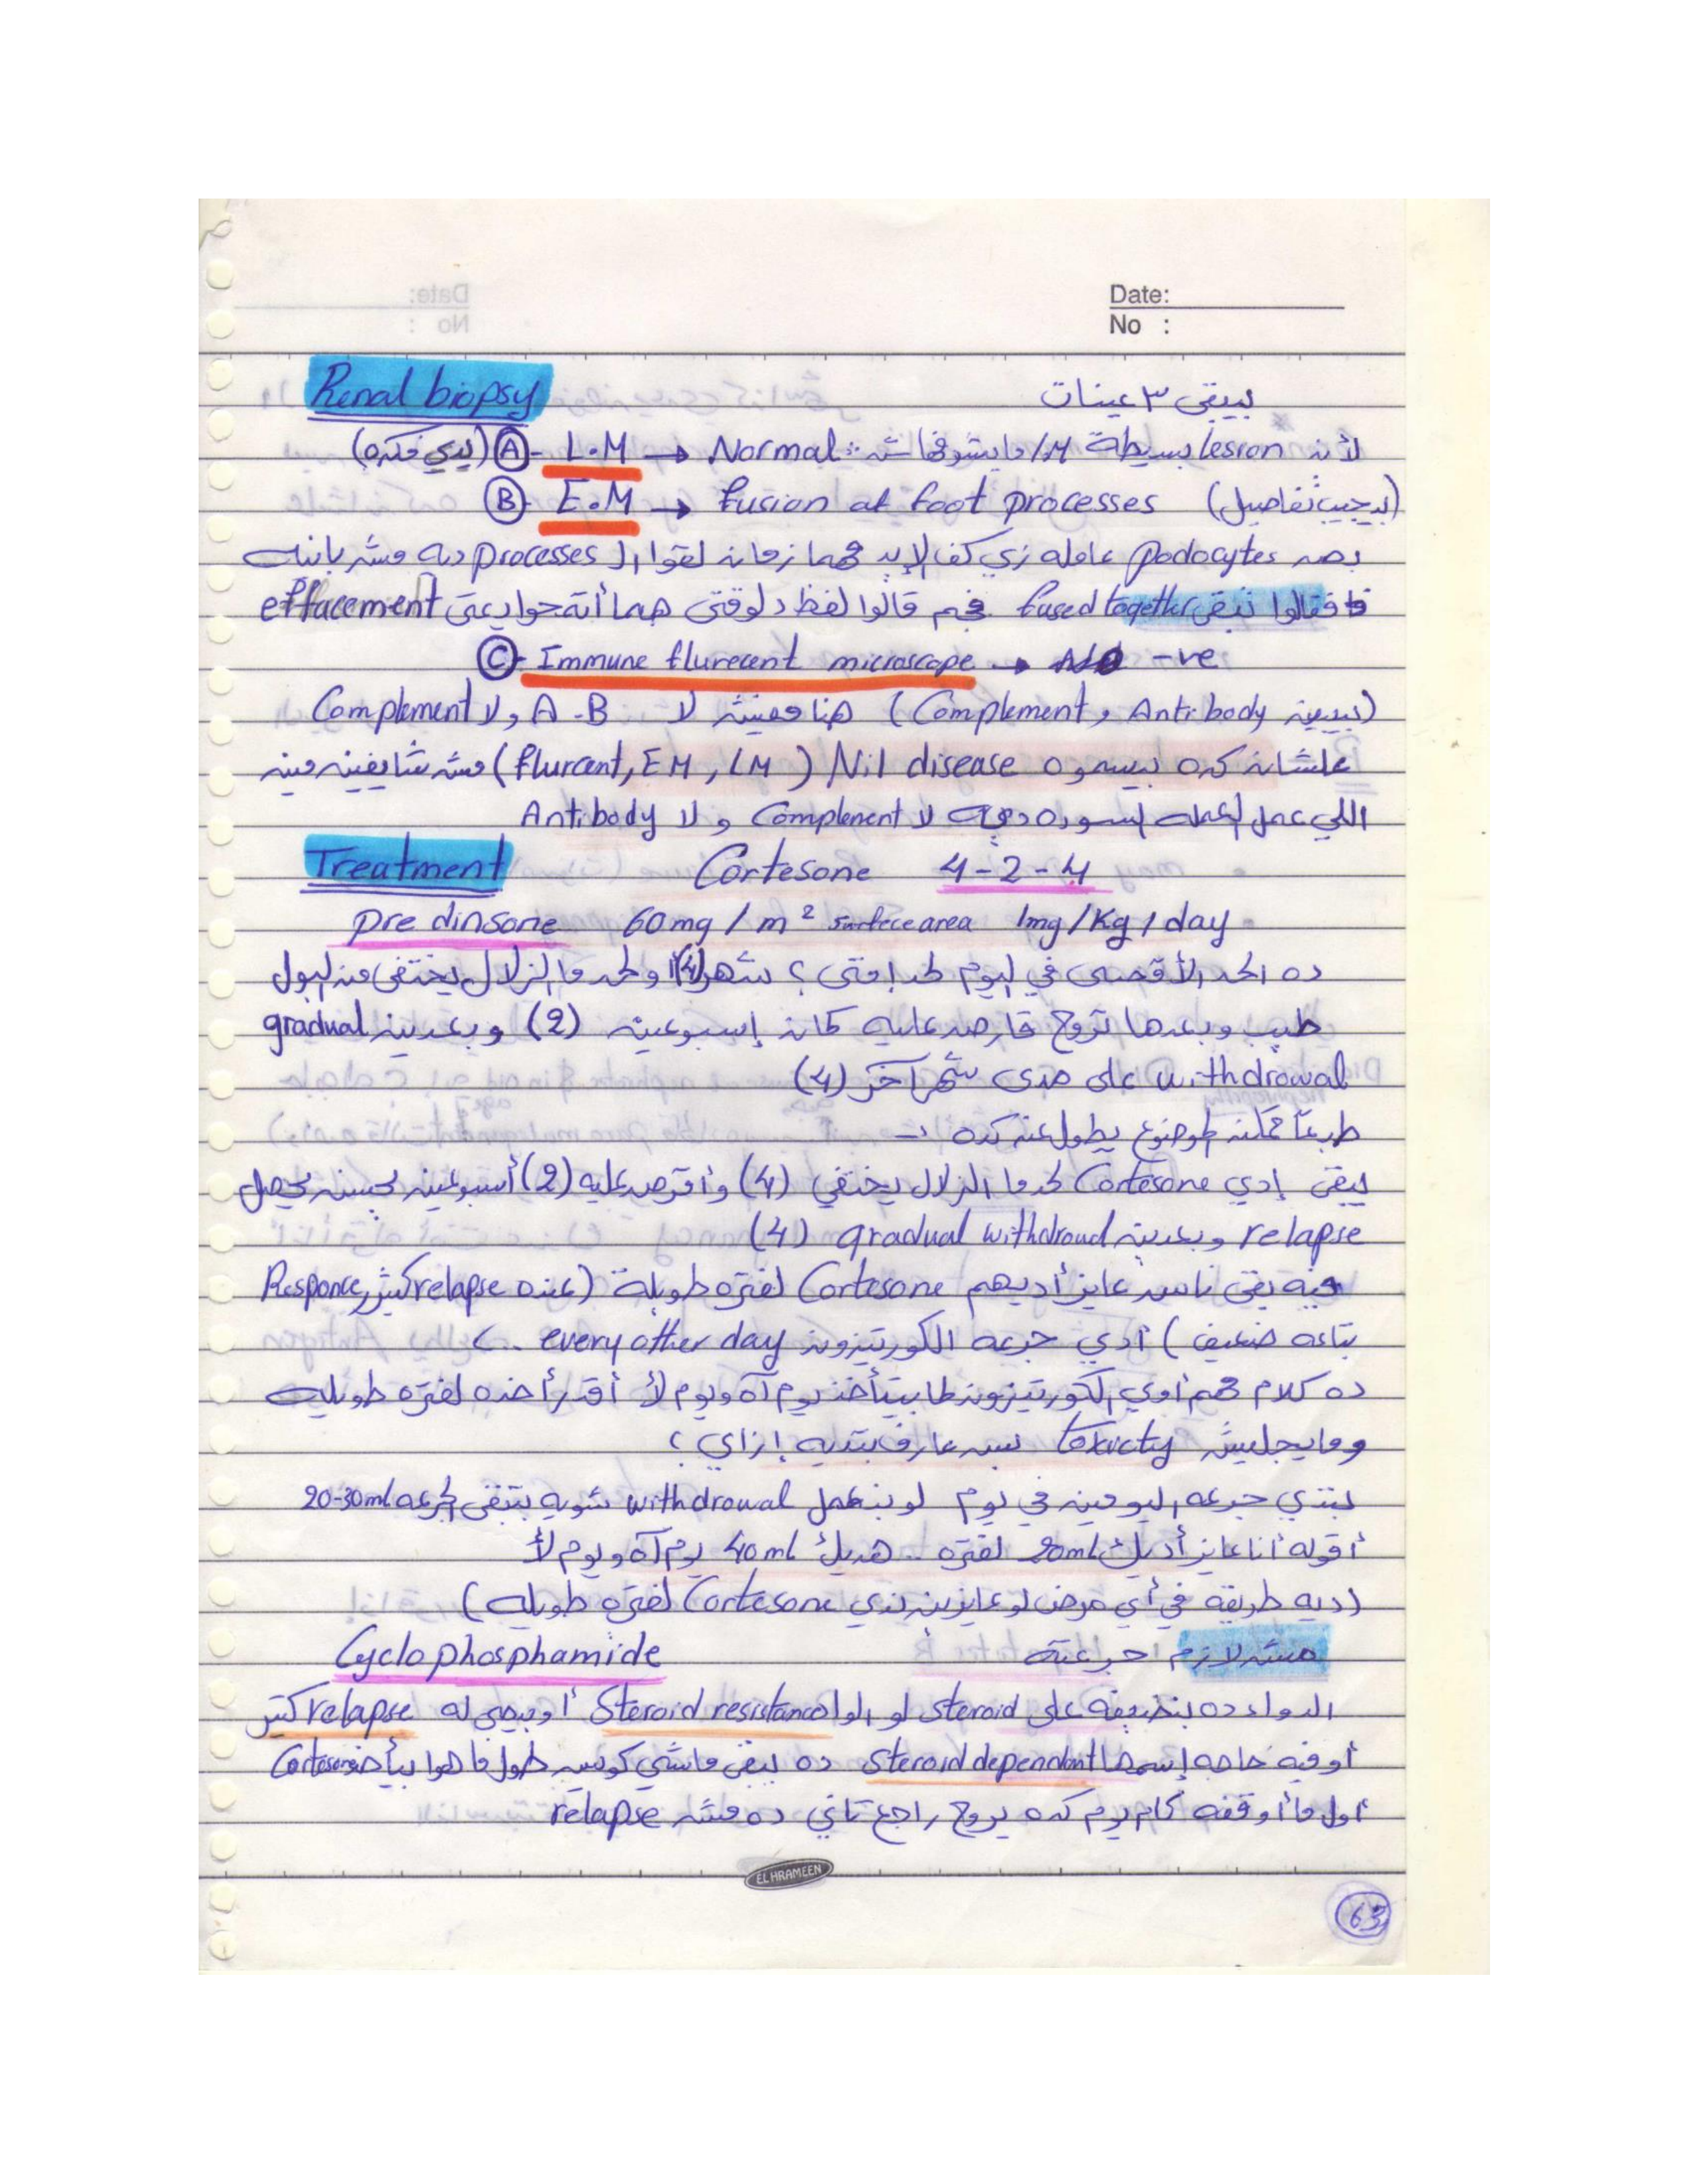 Date:
No :
Renal biopsy بيبقى ٣ عينات
(بيدي فكره) A- L.M → Normal لأن lesion بسيطة L.M مايشوفهاش
B- E.M → Fusion of foot processes (بيجيب تفاصيل)
بص podocytes عامله زي كف الإيد هما زمان لقوا الـ processes ديه مش باينه
فا فقالوا تبقى fused together هم قالوا لفظ دلوقتي effacement
C- Immune flurecent microscope → -ve
(بيبين Antibody و Complement) هنا مفيش لا A-B ولا Complement
علشان كده بيسموه Nil disease (flurcent, EM, LM) مش شايفين مين
اللي عمل العمله السوده ديه لا Complement و لا Antibody
Treatment Cortesone 4-2-4
pre dinsone 60mg / m2 surfece area 1mg/Kg/day
ده الحد الأقصى في اليوم لحد إمتى ؟ شهر (4) ولحد ما الزلال يختفى من البول
طيب وبعدها تروح قارص عليه كمان إسبوعين (2) وبعدين gradual
withdrowal على مدى شهر آخر (4)
طبعاً ممكن الموضوع يطول عن كده
يبقى إدي Cortesone لحد ما الزلال يختفي (4) وأقرص عليه (2) أسبوعين لحسن يحصل
relapse وبعدين gradual withdroud (4)
فيه بقى ناس عايز أديهم Cortesone لفتره طويلة (عنده relapse كتير, Responce
بتاعه ضعيف) أدي جرعه الكورتيزون every other day ..
ده كلام مهم أوي الكورتيزون لما بيتأخذ يوم آه ويوم لأ أقدر أخده لفتره طويله
ومايجليش toxicty بس عارف بتديه إزاي ؟
بتدي جرعه اليومين في يوم لو بنعمل withdrowal شويه بتبقى الجرعه 20-30ml
أقوله أنا عايز أديك 20ml لفتره .. هديك 40ml يوم آه ويوم لأ
(ديه طريقه في أي مرض لو عايزين ندي Cortesone لفتره طويله)
Cyclophosphamide مش لازم جرعته
الدواء ده بنضيفه على steroid لو الواد Steroid resistance أو بيجي له relapse كتير
أو فيه حاجه إسمها Steroid dependant ده يبقى ماشي كويس طول ما هوا بيأخذ Cortesone
أول ما أوقفه كام يوم كده يروح راجع تاني ده مش relapse
EL HRAMEEN
63